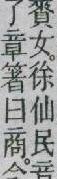 賚女。徐仙民音
了章箸曰商。